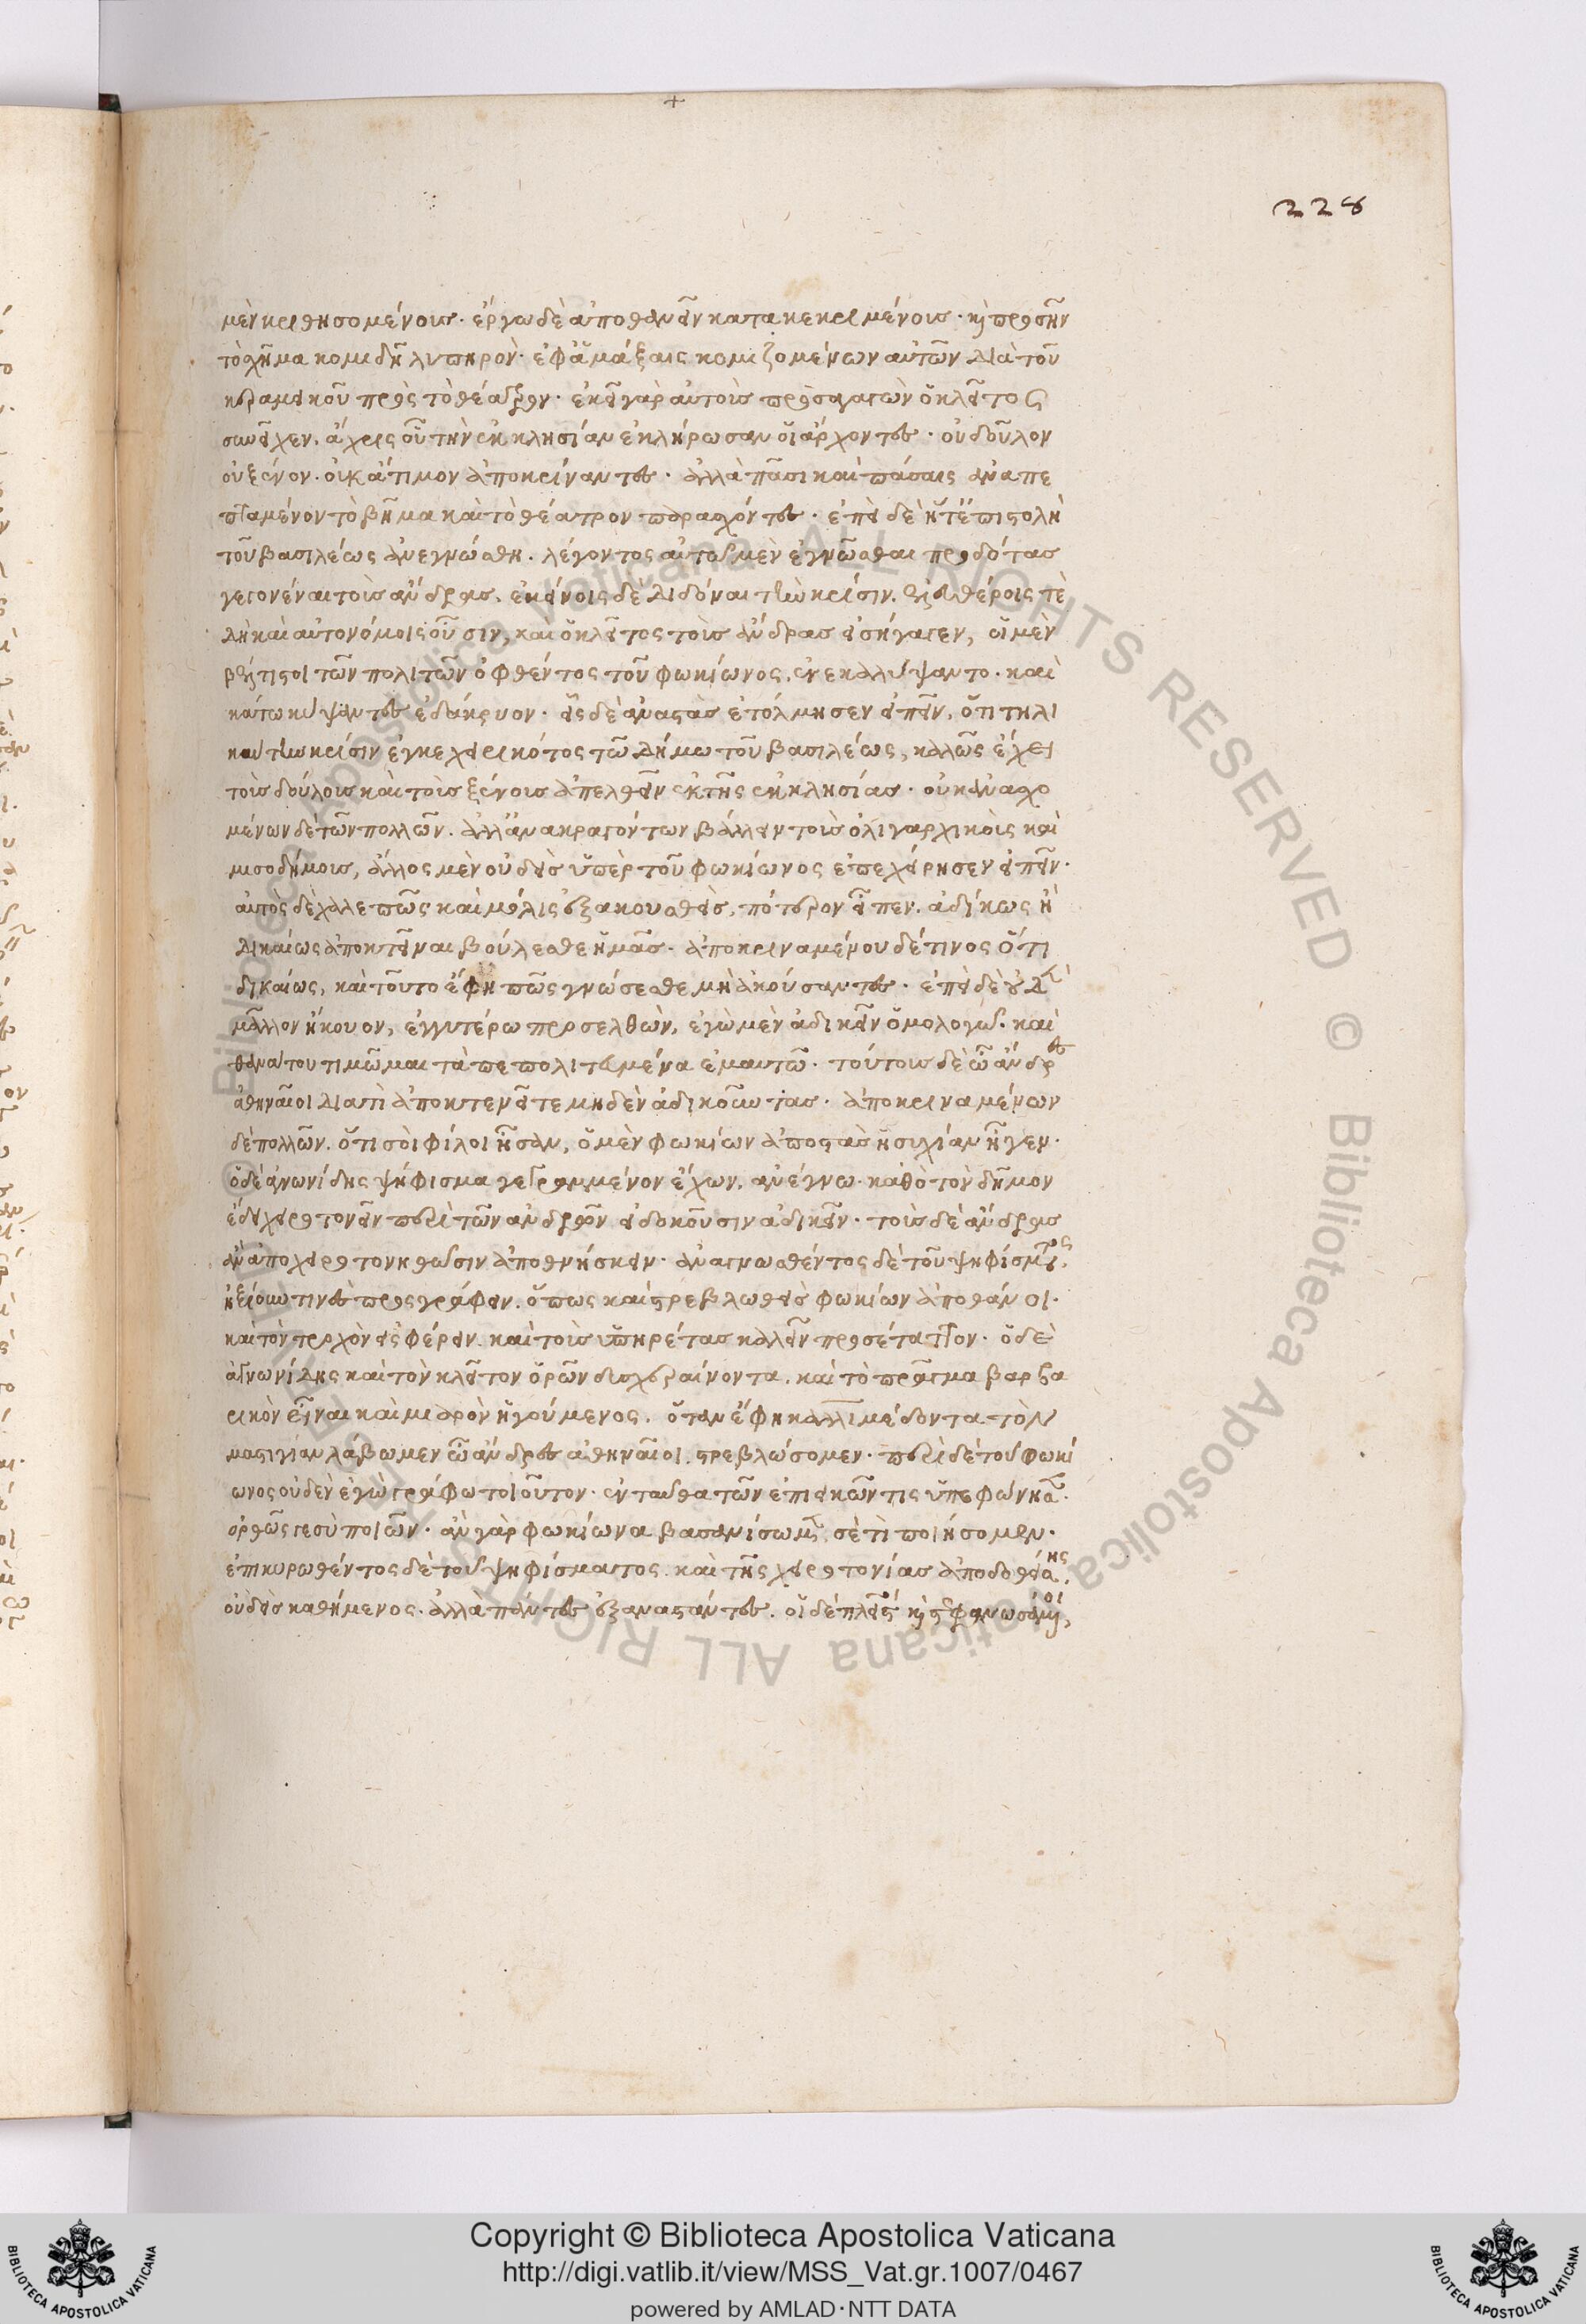 228
μὲν κριθησομένους. ἔργω δὲ ἀποθανεῖν κατακεκριμένους. καὶ προσῆν
τὸ σχῆμα κομιδῆ λυπηρὸν. ἐφ' ἁμάξαις κομιζομένων αὐτῶν διὰ τοῦ
κεραμεικοῦ πρὸς τὸ θέατρον. ἐκεῖ γὰρ αὐτοὺς προσαγαγὼν ὁ κλεῖτος
συνεῖχεν. ἄχρις οὗ τὴν ἐκκλησίαν ἐκλήρωσαν οἱ ἄρχοντες. οὐ δοῦλον
οὐ ξένον. οὐκ ἄτιμον ἀποκρίναντες. ἀλλὰ πᾶσι καὶ πάσαις ἀναπε
πταμένον τὸ βῆμα καὶ τὸ θέατρον παρασχόντες. ἐπεὶ δὲ ἥ τ' ἐπιστολὴ
τοῦ βασιλέως ἀνεγνώσθη. λέγοντος αὐτῶ μὲν ἐγνῶσθαι προδότας
γεγονέναι τοὺς ἄνδρας. ἐκείνοις δὲ διδόναι τὴν κρίσιν. ἐλευθέροις τὲ
δὴ καὶ αὐτονόμοις οὖσιν, καὶ ὁ κλεῖτος τοὺς ἄνδρας εἰσήγαγεν, οἱ μὲν
βέλτιστοι τῶν πολιτῶν ὀφθέντος τοῦ φωκίωνος, ἐνεκαλύψαντο. καὶ
κάτω κύψαντες ἐδάκρυον. εἷς δὲ ἀναστὰς ἐτόλμησεν εἰπεῖν, ὅτι τηλι
καύτην κρίσιν ἐγκεχειρικότος τῶ δήμω τοῦ βασιλέως, καλῶς ἔχει
τοὺς δούλους καὶ τοὺς ξένους ἀπελθεῖν ἐκ τῆς ἐκκλησίας. οὐκ ἀνασχο
μένων δὲ τῶν πολλῶν. ἀλλ' ἀνακραγόντων βάλλειν τοὺς ὀλιγαρχικοὺς καὶ
μισοδήμους, ἄλλος μὲν οὐδεὶς ὑπὲρ τοῦ φωκίωνος ἐπεχείρησεν εἰπεῖν.
αὐτὸς δὲ χαλεπῶς καὶ μόλις ἐξακουσθεὶς, πότερον εἶπεν. ἀδίκως ἢ
δικαίως ἀποκτεῖναι βούλεσθε ἡμᾶς. ἀποκριναμένου δέ τινος ὅτι
δικαίως, καὶ τοῦτο ἔφη πῶς γνώσεσθε μὴ ἀκούσαντες. ἐπεὶ δὲ οὐδὲν
μᾶλλον ἤκουον, ἐγγυτέρω προσελθὼν, ἐγὼ μὲν ἀδικεῖν ὁμολογῶ. καὶ
θανάτου τιμῶμαι τὰ πεπολιτευμένα ἐμαυτῶ. τούτους δὲ ὦ ἄνδρες
ἀθηναῖοι διατὶ ἀποκτενεῖτε μηδὲν ἀδικοῦντας. ἀποκριναμένων
δὲ πολλῶν. ὅτι σοὶ φίλοι ἦσαν, ὁ μὲν φωκίων ἀποστὰς ἡσυχίαν ἦγεν.
ὁ δὲ ἁγνωνίδης ψήφισμα γεγραμμένον ἔχων, ἀνέγνω. καθὸ τὸν δῆμον
ἔδει χειροτονεῖν περὶ τῶν ἀνδρῶν εἰ δοκοῦσιν ἀδικεῖν. τοὺς δὲ ἄνδρας
ἂν ἀποχειροτονηθῶσιν ἀποθνήσκειν. ἀναγνωσθέντος δὲ τοῦ ψηφίσματος,
ἠξίουν τινες προσγράφειν. ὅπως καὶ στρεβλωθεὶς φωκίων ἀποθάνοι.
καὶ τὸν τροχὸν εἰσφέρειν. καὶ τοὺς ὑπηρέτας καλεῖν προσέταττον. ὁ δὲ
ἁγνωνίδης καὶ τὸν κλεῖτον ὁρῶν δυσχεραίνοντα. καὶ τὸ πρᾶγμα βαρβα
ρικὸν εἶναι καὶ μιαρὸν ἡγούμενος. ὅταν ἔφη καλλιμέδοντα τὸν
μαστιγίαν λάβωμεν ὦ ἄνδρες ἀθηναῖοι, στρεβλώσομεν. περὶ δὲ τοῦ φωκί
ωνος οὐδὲν ἐγὼ γράφω τοιοῦτον. ἐνταῦθα τῶν ἐπιεικῶν τις ὑπεφώνησεν.
ὀρθῶς γε σὺ ποιῶν. ἂν γὰρ φωκίωνα βασανίσωμεν, σὲ τί ποιήσομεν.
ἐπικυρωθέντος δὲ τοῦ ψηφίσματος. καὶ τῆς χειροτονίας ἀποδοθείσης,
οὐδεὶς καθήμενος. ἀλλὰ πάντες ἐξαναστάντες. οἱ δὲ πλεῖστοι καὶ στεφανωσάμενοι,
Copyright © Biblioteca Apostolica Vaticana
http://digi.vatlib.it/view/MSS_Vat.gr.1007/0467
powered by AMLAD·NTT DATA